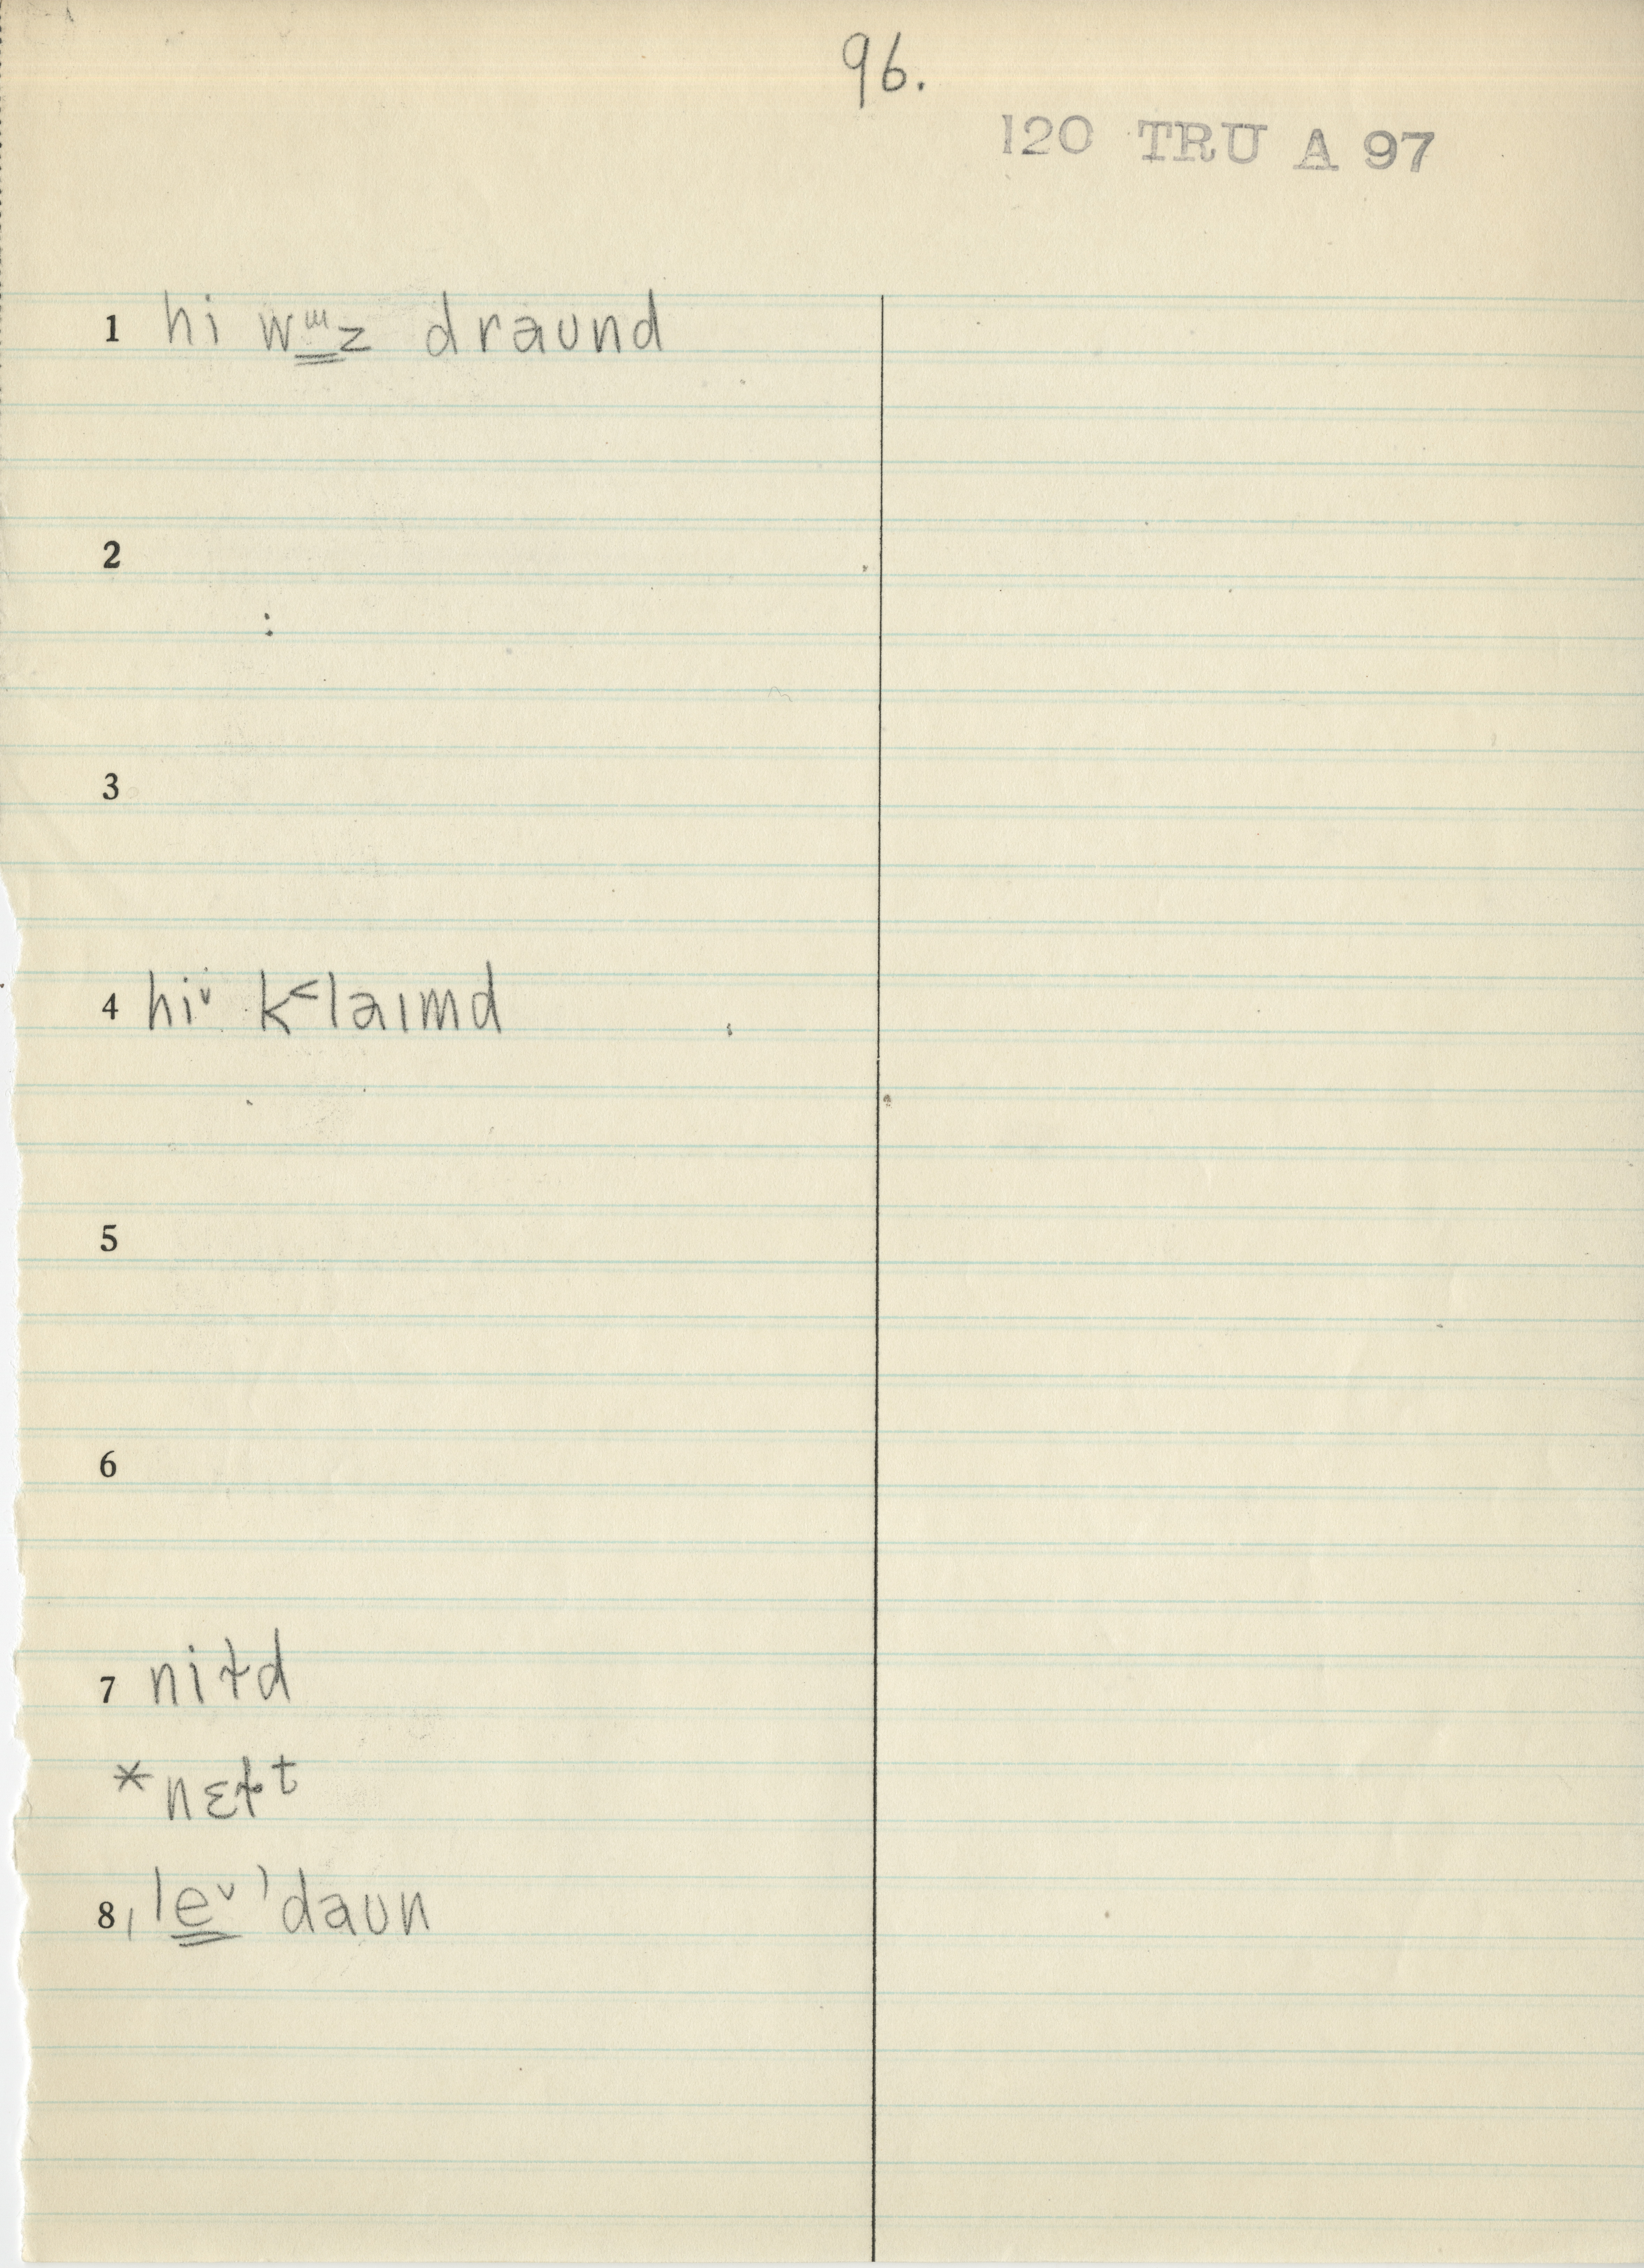 96.
120 TRU A 97
1 hi wɯz draund
2
3
4 hiˇ k˂laɪmd
5
6
7 niɫd
*nɛɫᵗ
8 ˌleˇ ˈdaun